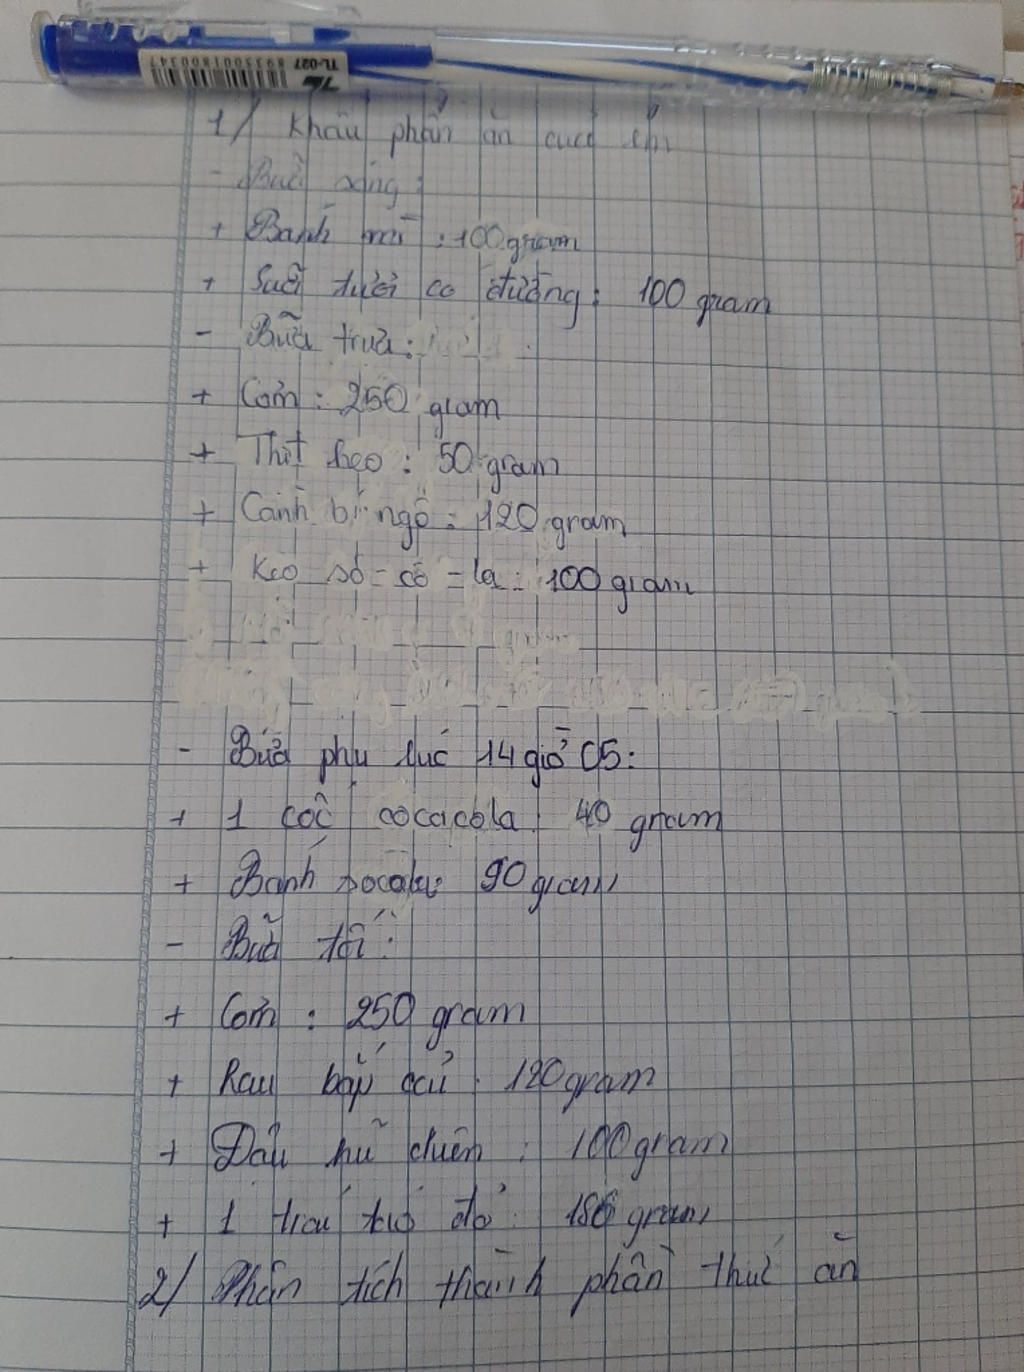 TL-027
8935001800347
1/ Khẩu phần ăn của em
- Buổi sáng:
+ Bánh mì : 100 gram
+ Sữa tươi có đường: 100 gram
- Bữa trưa:
+ Cơm : 250 gram
+ Thịt heo : 50 gram
+ Canh bí ngô : 120 gram
+ Kẹo sô-cô-la : 100 gram
- Bữa phụ lúc 14 giờ 05:
+ 1 cốc cocacola: 40 gram
+ Bánh socola: 90 gram
- Bữa tối:
+ Cơm : 250 gram
+ Rau bắp cải : 120 gram
+ Đậu hũ chiên : 100 gram
+ 1 trái táo đỏ : gram
2/ Phân tích thành phần thức ăn